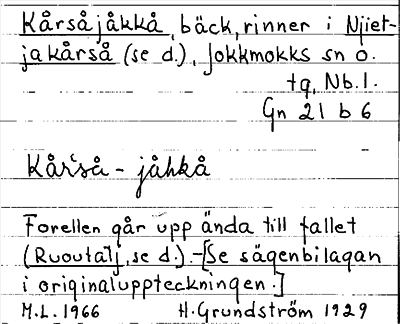 Kårsåjåkkå, bäck, rinner i Njiet-
jakårså (se d.), Jokkmokks sn o.
tg, Nb.l.
Gn 21 b 6
Kår̄'så - jåhkå
Forellen går upp ända till fallet
(Ruovtalj, se d.).-[Se sägenbilagan
i originaluppteckningen.]
M.L. 1966 H. Grundström 1929